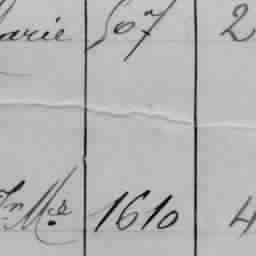 arie 507 2
Jn Mc 1610 4